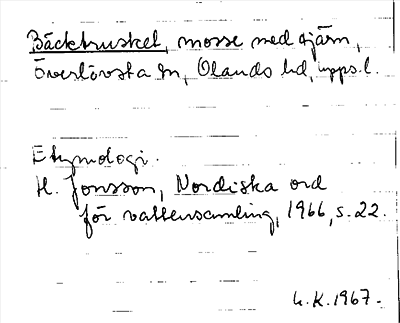 Bäcktrusket, mosse med tjärn,
Överlövsta sn, Olands hd, Upps.l.
Etymologi.
H. Jonsson, Nordiska ord
för vattensamling, 1966, s. 22.
L.K. 1967.